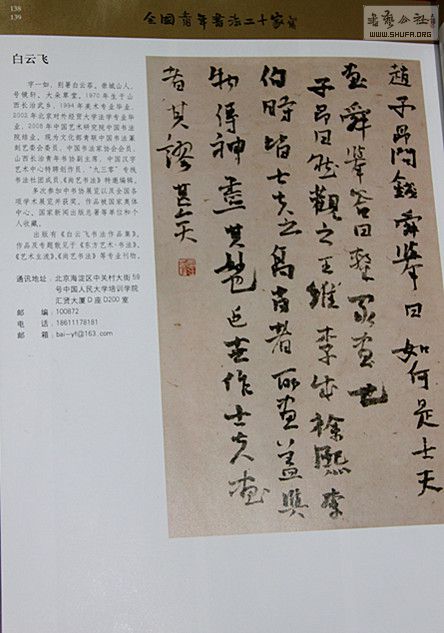 138
139
全国青年书法二十家
书艺公社
WWW.SHUFA.ORG
白云飞
字一如，别署白云斋、壶城山人，
号傲轩、大朵草堂。1970年生于山
西长治武乡，1994年美术专业毕业，
2002年北京对外经贸大学法学专业毕
业，2008年中国艺术研究院中国书法
院结业。现为文化部青联中国书法篆
刻艺委会委员，中国书法家协会会员，
山西长治青年书协副主席，中国汉字
艺术中心特聘创作员，“九三零”专线
书法社团成员，《尚艺书法》特邀编辑。
多次参加中书协展览以及全国各
项学术展览并获奖。作品被国家具体
中心、国家新闻出版总署等单位和个
人收藏。
出版有《白云飞书法作品集》。
作品及专题散见于《东方艺术·书法》、
《艺术生活》、《尚艺书法》等专业刊物。
通讯地址：北京海淀区中关村大街59
号中国人民大学培训学院
汇贤大厦D座D200室
邮 编：100872
电 话：18611178181
邮 箱：bai-yf@163.com
趙子昂問錢舜舉曰如何是士夫
画舜舉答曰隸家画也
子昂曰然觀之王維李成徐熙李
伯時皆士夫之高尚者所画盖與
物傳神盡其妙也近世作士夫画
者其謬甚矣